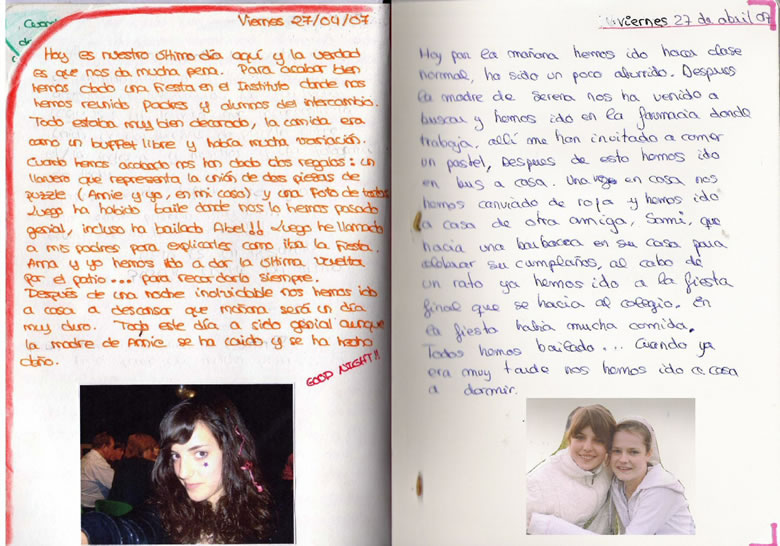 Viernes 27/04/07
Hoy es nuestro último día aquí y la verdad
es que nos da mucha pena. Para acabar bien
hemos dado una fiesta en el Instituto donde nos
hemos reunido Padres y alumnos del intercambio.
Todo estaba muy bien decorado, la comida era
como un buffet libre y había mucha variación.
Cuando hemos acabado nos han dado dos regalos: un
llavero que representa la unión de dos piezas de
puzzle (Annie y yo, en mi caso) y una foto de todos
Luego ha habido baile donde nos lo hemos pasado
genial, incluso ha bailado Abel!! Luego he llamado
a mis padres para explicarles como iba la fiesta.
Anna y yo hemos ido a dar la última vuelta
por el patio... para recordarlo siempre.
Después de una noche inolvidable nos hemos ido
a casa a descansar que mañana será un día
muy duro. Todo este día a sido genial aunque
la madre de Annie se ha caido y se ha hecho
daño.
GOOD NIGHT!!
viernes 27 de abril 07
Hoy por la mañana hemos ido hacer clase
normal, ha sido un poco aburrido. Despues
la madre de Serena nos ha venido a
buscar y hemos ido en la farmacia donde
trabaja, allí me han invitado a comer
un pastel, Despues de esto hemos ido
en bus a casa. Una vez en casa nos
hemos canviado de ropa y hemos ido
a casa de otra amiga, Sami, que
hacia una barbacoa en su casa para
celebrar su cumplaños, al cabo de
un rato ya hemos ido a la fiesta
final que se hacia al colegio. En
la fiesta habia mucha comida.
Todos hemos bailado... Cuando ya
era muy tarde nos hemos ido a casa
a dormir.